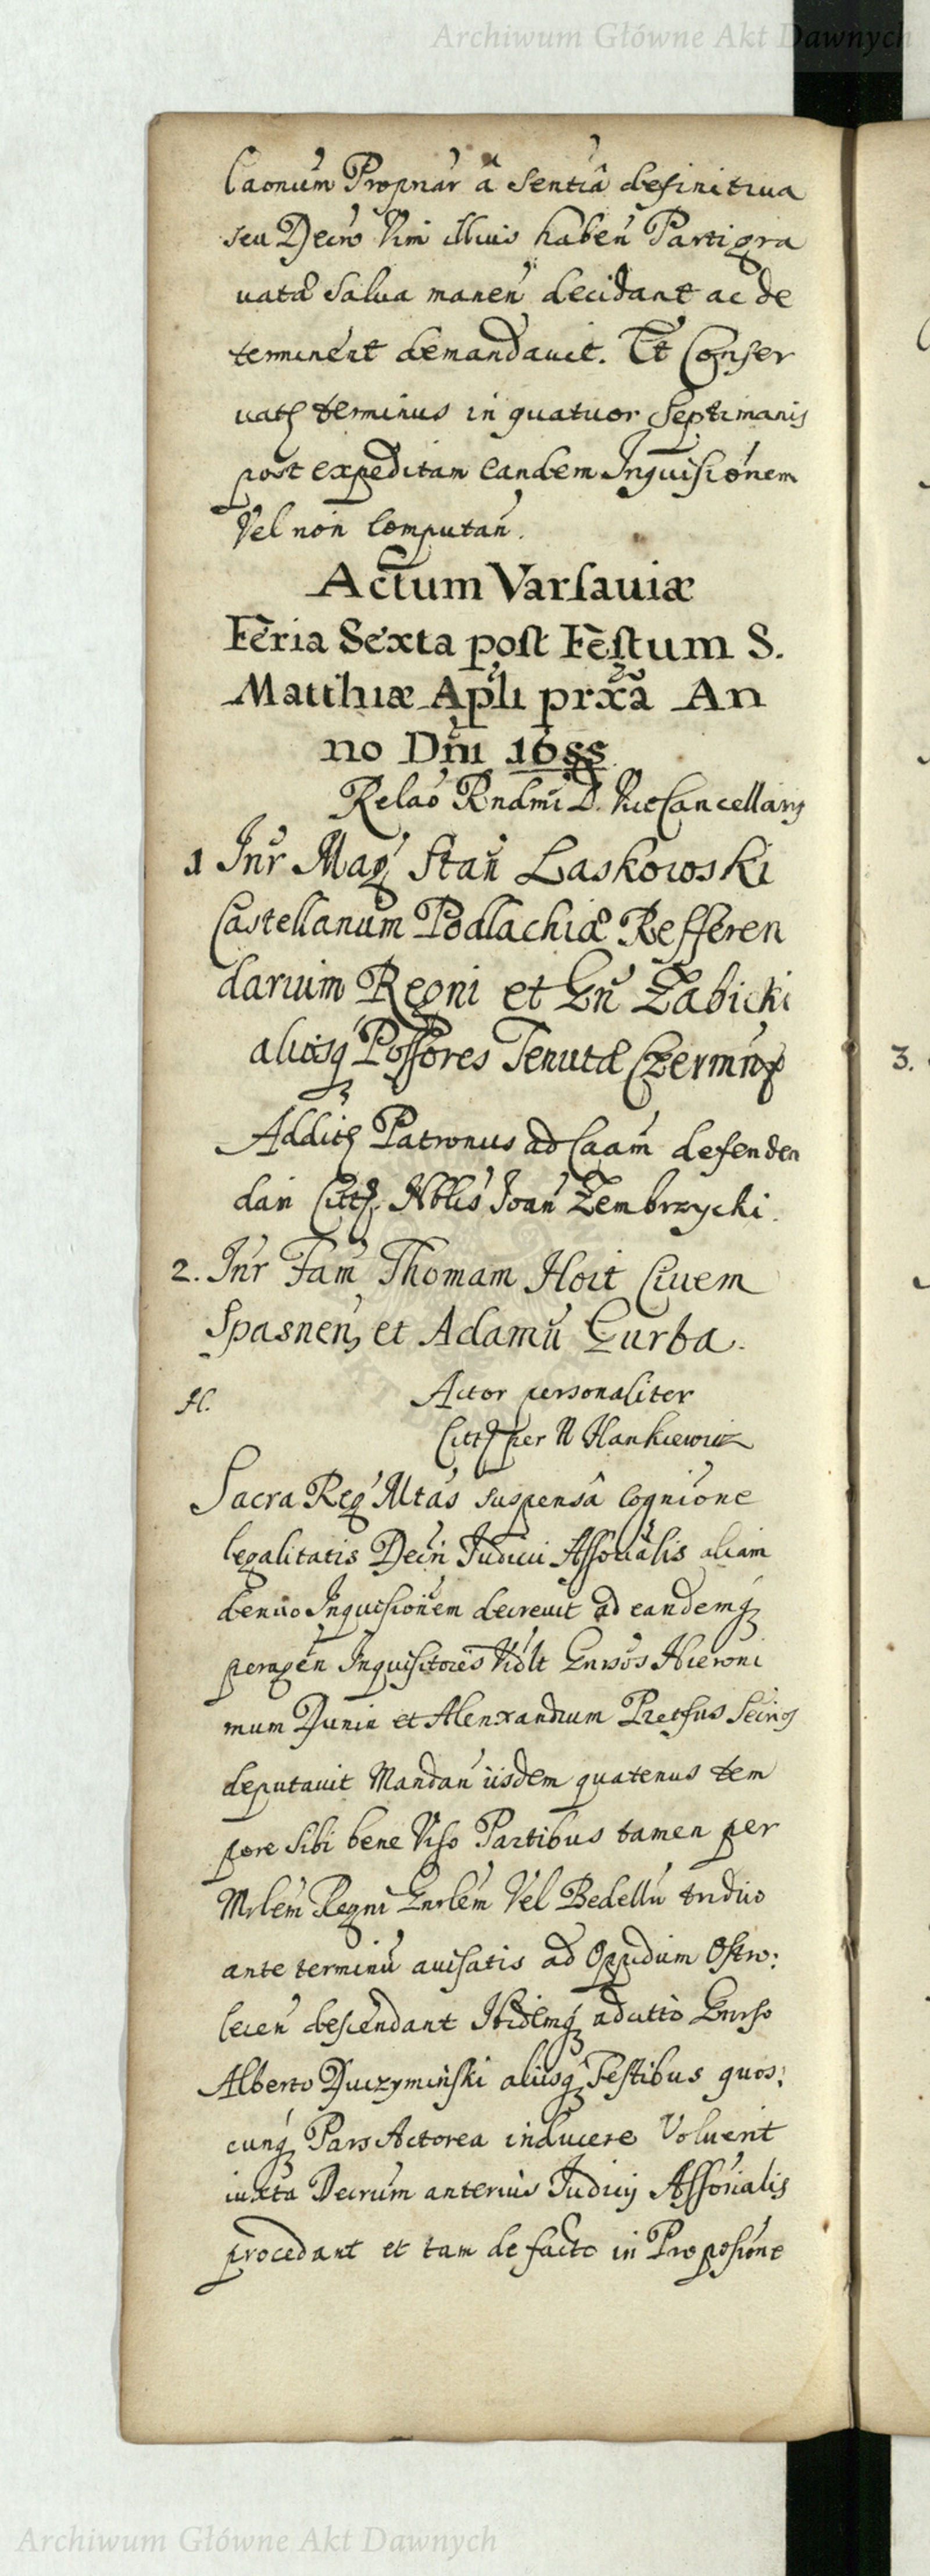 Archiwum Główne Akt Dawnych
Caonum Propnar à Sentiâ definitiua
seu Decro Vim illius haben Parti gra
uatæ salua manen decidant ac de
terminent demandauit. Et Conser
uatę terminus in quatuor septimanis
post expeditam eandem Inquisiōnem
Vel non computan.
Actum Varsauiæ
Feria Sexta post Festum S.
Matthiæ Apli prxã An
no Dni 1688
Relaō Rndmi D. ViceCancellarij
1 Inr Mag Stan Laskowski
Castellanum Podlachiæ Refferen
darium Regni et Gn Zabicki
aliosq Possores Tenutæ
Addit Patronus ad Caam defenden
dan Citt Nblis Joan Zembrzycki.
2. Inr Fam Thomam Hoit Ciuem
Spasnen et Adamũ Gurba.
H. Actor personaliter
Citt per N Hankiewicz
Sacra Reg Mtas suspensâ cogniōne
legalitatis Decri Judicii Assorialis aliam
denuo Inquisiōnem decreuit ad eandemq
peragen Inquisitores Vidlt Gnrsos Hieroni
mum Dunin et Alexandrum
deputauit Mandan iisdem quatenus tem
pore sibi bene Viso Partibus tamen per
Mrlem Regni Gnrlem Vel Bedellũ triduo
ante terminũ auisatis ad Oppidum Ostro:
lecen descendant Ibidemq adcitto Gnrso
Alberto Duczyminski aliisq Testibus quos:
cunq Pars Actorea inducere Voluerit
iuxta Decrum anterius Judicij Assorialis
procedant et tam de facto in Proposiōne
3.
Archiwum Główne Akt Dawnych